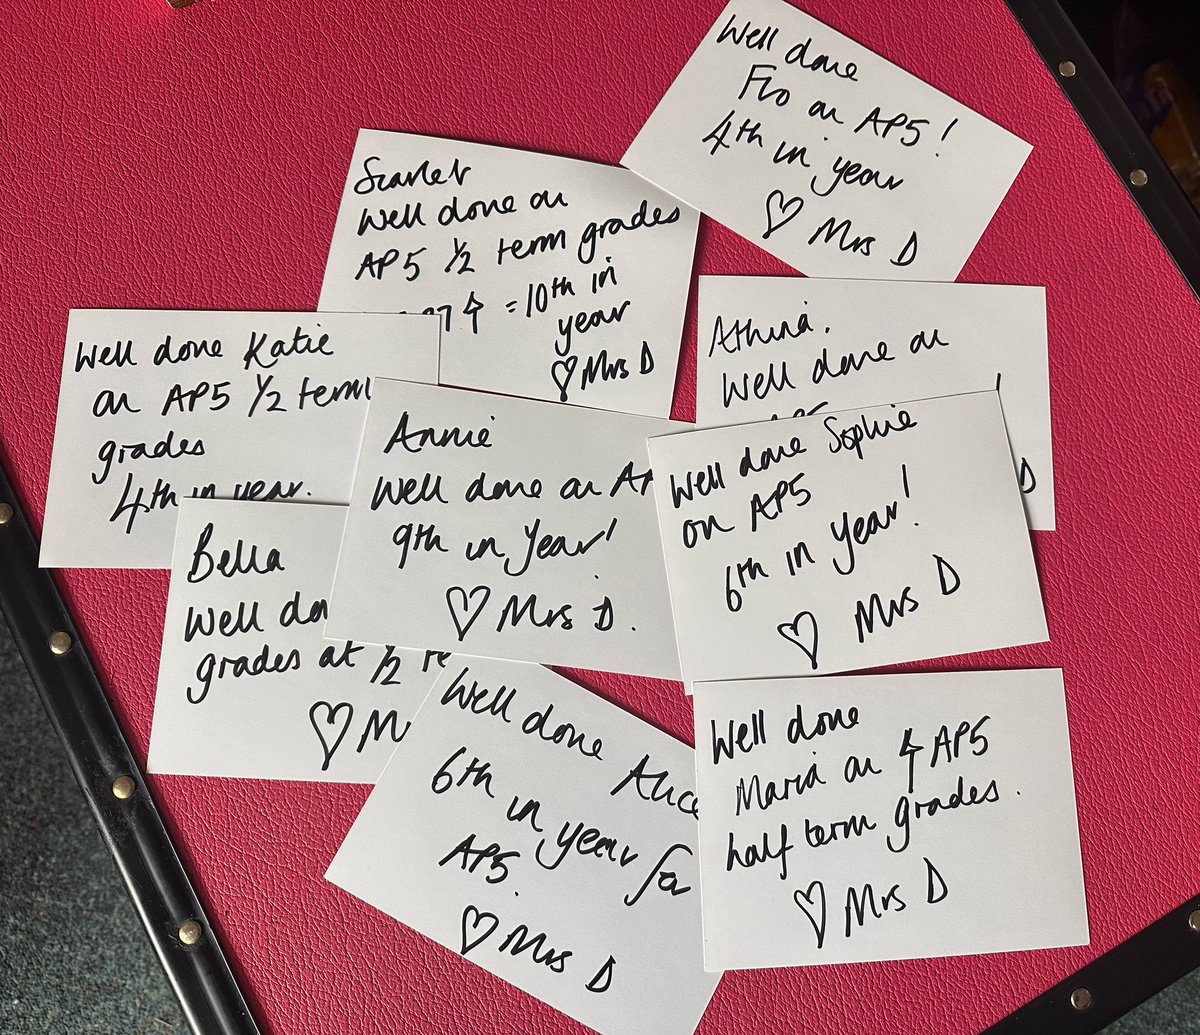 Well done
Flo on AP5!
4th in year
♡ Mrs D
Scarlet
Well done on
AP5 1/2 term grades
= 10th in
year
♡ Mrs D
Well done Katie
on AP5 1/2 term
grades
4th in year.
Athina.
Well done on
AP5
D
Annie
Well done on AP
9th in Year!
♡ Mrs D.
Well done Sophie
on AP5
6th in year!
♡ Mrs D
Bella
Well do
grades at 1/2 te
♡ M
Well done Alice
6th in year for
AP5.
♡ Mrs D
Well done
Maria on ↑ AP5
half term grades.
♡ Mrs D